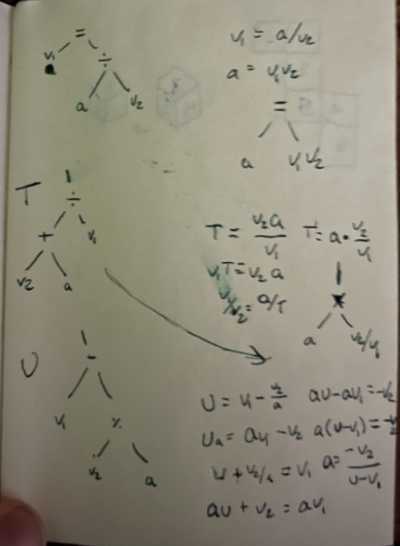 =
v₁ ÷
a v₂
v₁ = a/v₂
a = v₁v₂
=
a v₁v₂
T
÷
+ v₁
v₂ a
T = v₂a/v₁
T = a · v₂/v₁
v₁T = v₂a
= a/T
a v₂/v₁
U
-
v₁
v₂ a
U = v₁ - v₂/a
au - av₁ = -v₂
Ua = av₁ - v₂
a(u-v₁) = -v₂
u + v₂/a = v₁
a = -v₂/u-v₁
au + v₂ = av₁